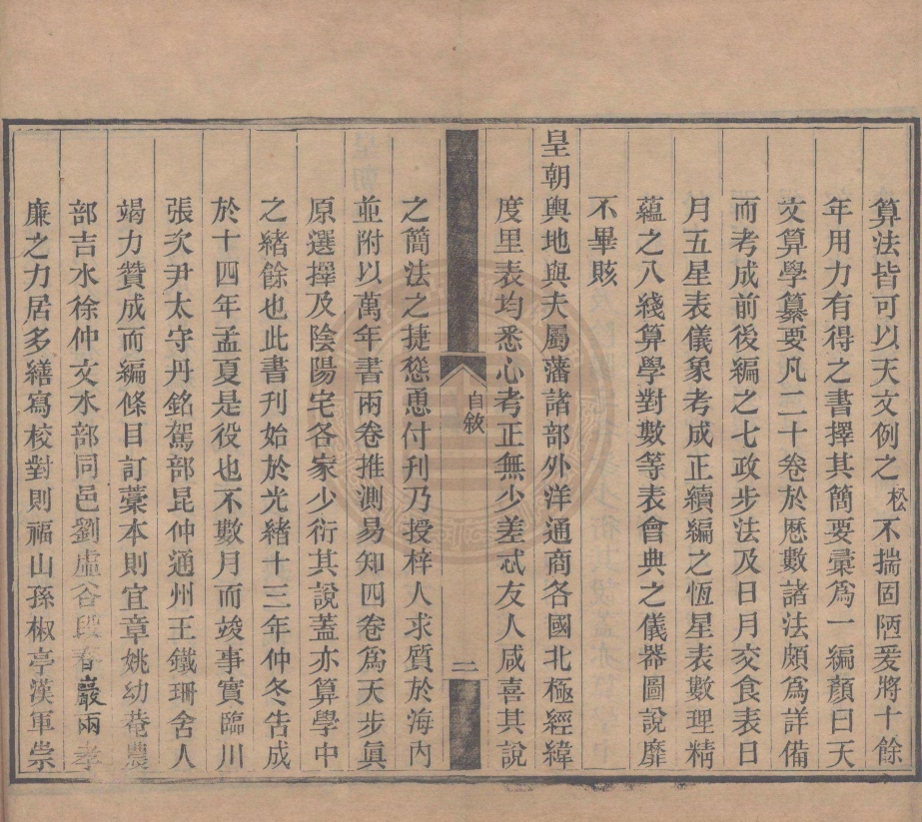 算法皆可以天文例之松不揣固陋爰將十餘
年用力有得之書擇其簡要彙爲一編顏曰天
文算學纂要凡二十卷於厯數諸法頗爲詳備
而考成前後編之七政步法及日月交食表日
月五星表儀象考成正續編之恆星表數理精
蘊之八綫算學對數等表會典之儀器圖說靡
不畢賅
皇朝輿地與夫屬藩諸部外洋通商各國北極經緯
度里表均悉心考正無少差忒友人咸喜其說
自敘
二
之簡法之捷慫恿付刊乃授梓人求質於海內
並附以萬年書兩卷推測易知四卷爲天步眞
原選擇及陰陽宅各家少衍其說蓋亦算學中
之緒餘也此書刊始於光緒十三年仲冬告成
於十四年孟夏是役也不數月而竣事實臨川
張次尹太守丹銘駕部昆仲通州王鐵珊舍人
竭力贊成而編條目訂藁本則宜章姚幼菴農
部吉水徐仲文水部同邑劉虛谷段春巖兩孝
廉之力居多繕寫校對則福山孫椒亭漢軍崇